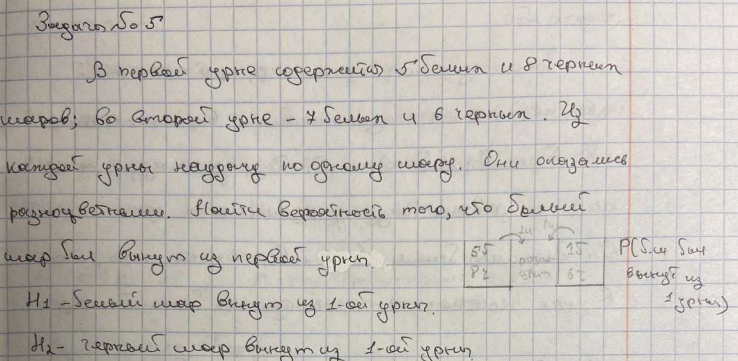 Задача №5
В первой урне содержится 5 белых и 8 черных
шаров; во второй урне - 7 белых и 6 черных. Из
каждой урны наудачу по одному шару. Они оказались
разноцветными. Найти вероятность того, что белый
шар был вынут из первой урны.
5б 8ч
P(б.ш был вынут из 1 урны)
H1 - белый шар вынут из 1-ой урны.
H2 - черный шар вынут из 1-ой урны